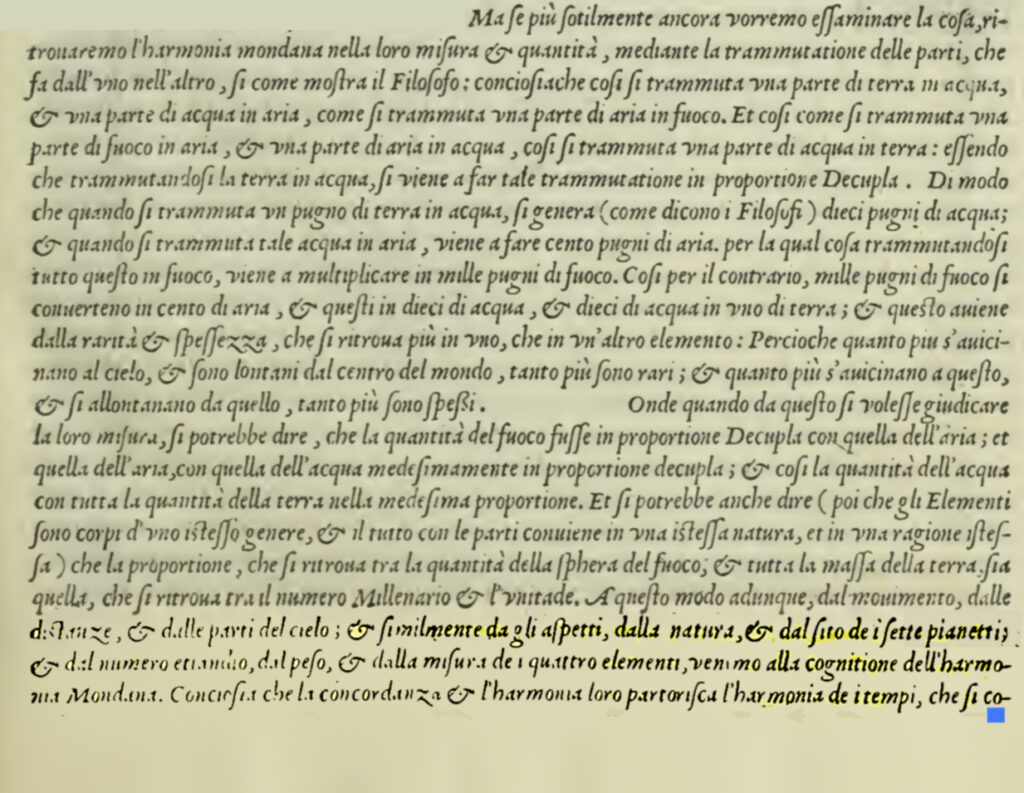 Ma se più sotilmente ancora vorremo eſſaminare la coſa, ri-
trouaremo l'harmonia mondana nella loro miſura & quantità, mediante la trammutatione delle parti, che
fa dall'vno nell'altro, ſi come moſtra il Filoſofo: concioſiache coſi ſi trammuta vna parte di terra in acqua,
& vna parte di acqua in aria, come ſi trammuta vna parte di aria in fuoco. Et coſi come ſi trammuta vna
parte di fuoco in aria, & vna parte di aria in acqua, coſi ſi trammuta vna parte di acqua in terra: eſſendo
che trammutandoſi la terra in acqua, ſi viene a far tale trammutatione in proportione Decupla. Di modo
che quando ſi trammuta vn pugno di terra in acqua, ſi genera (come dicono i Filoſofi) dieci pugni di acqua;
& quando ſi trammuta tale acqua in aria, viene a fare cento pugni di aria. per la qual coſa trammutandoſi
tutto queſto in fuoco, viene a multiplicare in mille pugni di fuoco. Coſi per il contrario, mille pugni di fuoco ſi
conuerteno in cento di aria, & queſti in dieci di acqua, & dieci di acqua in vno di terra; & queſto auiene
dalla rarità & ſpeſſezza, che ſi ritroua più in vno, che in vn'altro elemento: Percioche quanto piu s'auici-
nano al cielo, & ſono lontani dal centro del mondo, tanto più ſono rari; & quanto più s'auicinano a queſto,
& ſi allontanano da quello, tanto più ſono ſpeßi. Onde quando da queſto ſi voleſſe giudicare
la loro miſura, ſi potrebbe dire, che la quantità del fuoco fuſſe in proportione Decupla con quella dell'aria; et
quella dell'aria, con quella dell'acqua medeſimamente in proportione decupla; & coſi la quantità dell'acqua
con tutta la quantità della terra nella medeſima proportione. Et ſi potrebbe anche dire (poi che gli Elementi
ſono corpi d'vno iſteſſo genere, & il tutto con le parti conuiene in vna iſteſſa natura, et in vna ragione iſteſ-
ſa) che la proportione, che ſi ritroua tra la quantità della ſphera del fuoco, & tutta la maſſa della terra, ſia
quella, che ſi ritroua tra il numero Millenario & l'vnitade. A queſto modo adunque, dal mouimento, dalle
diſtanze, & dalle parti del cielo; & ſimilmente da gli aſpetti, dalla natura, & dal ſito de i ſette pianetti;
& dal numero etiandio, dal peſo, & dalla miſura de i quattro elementi, venimo alla cognitione dell'harmo-
nia Mondana. Concioſia che la concordanza & l'harmonia loro partoriſca l'harmonia de i tempi, che ſi co-